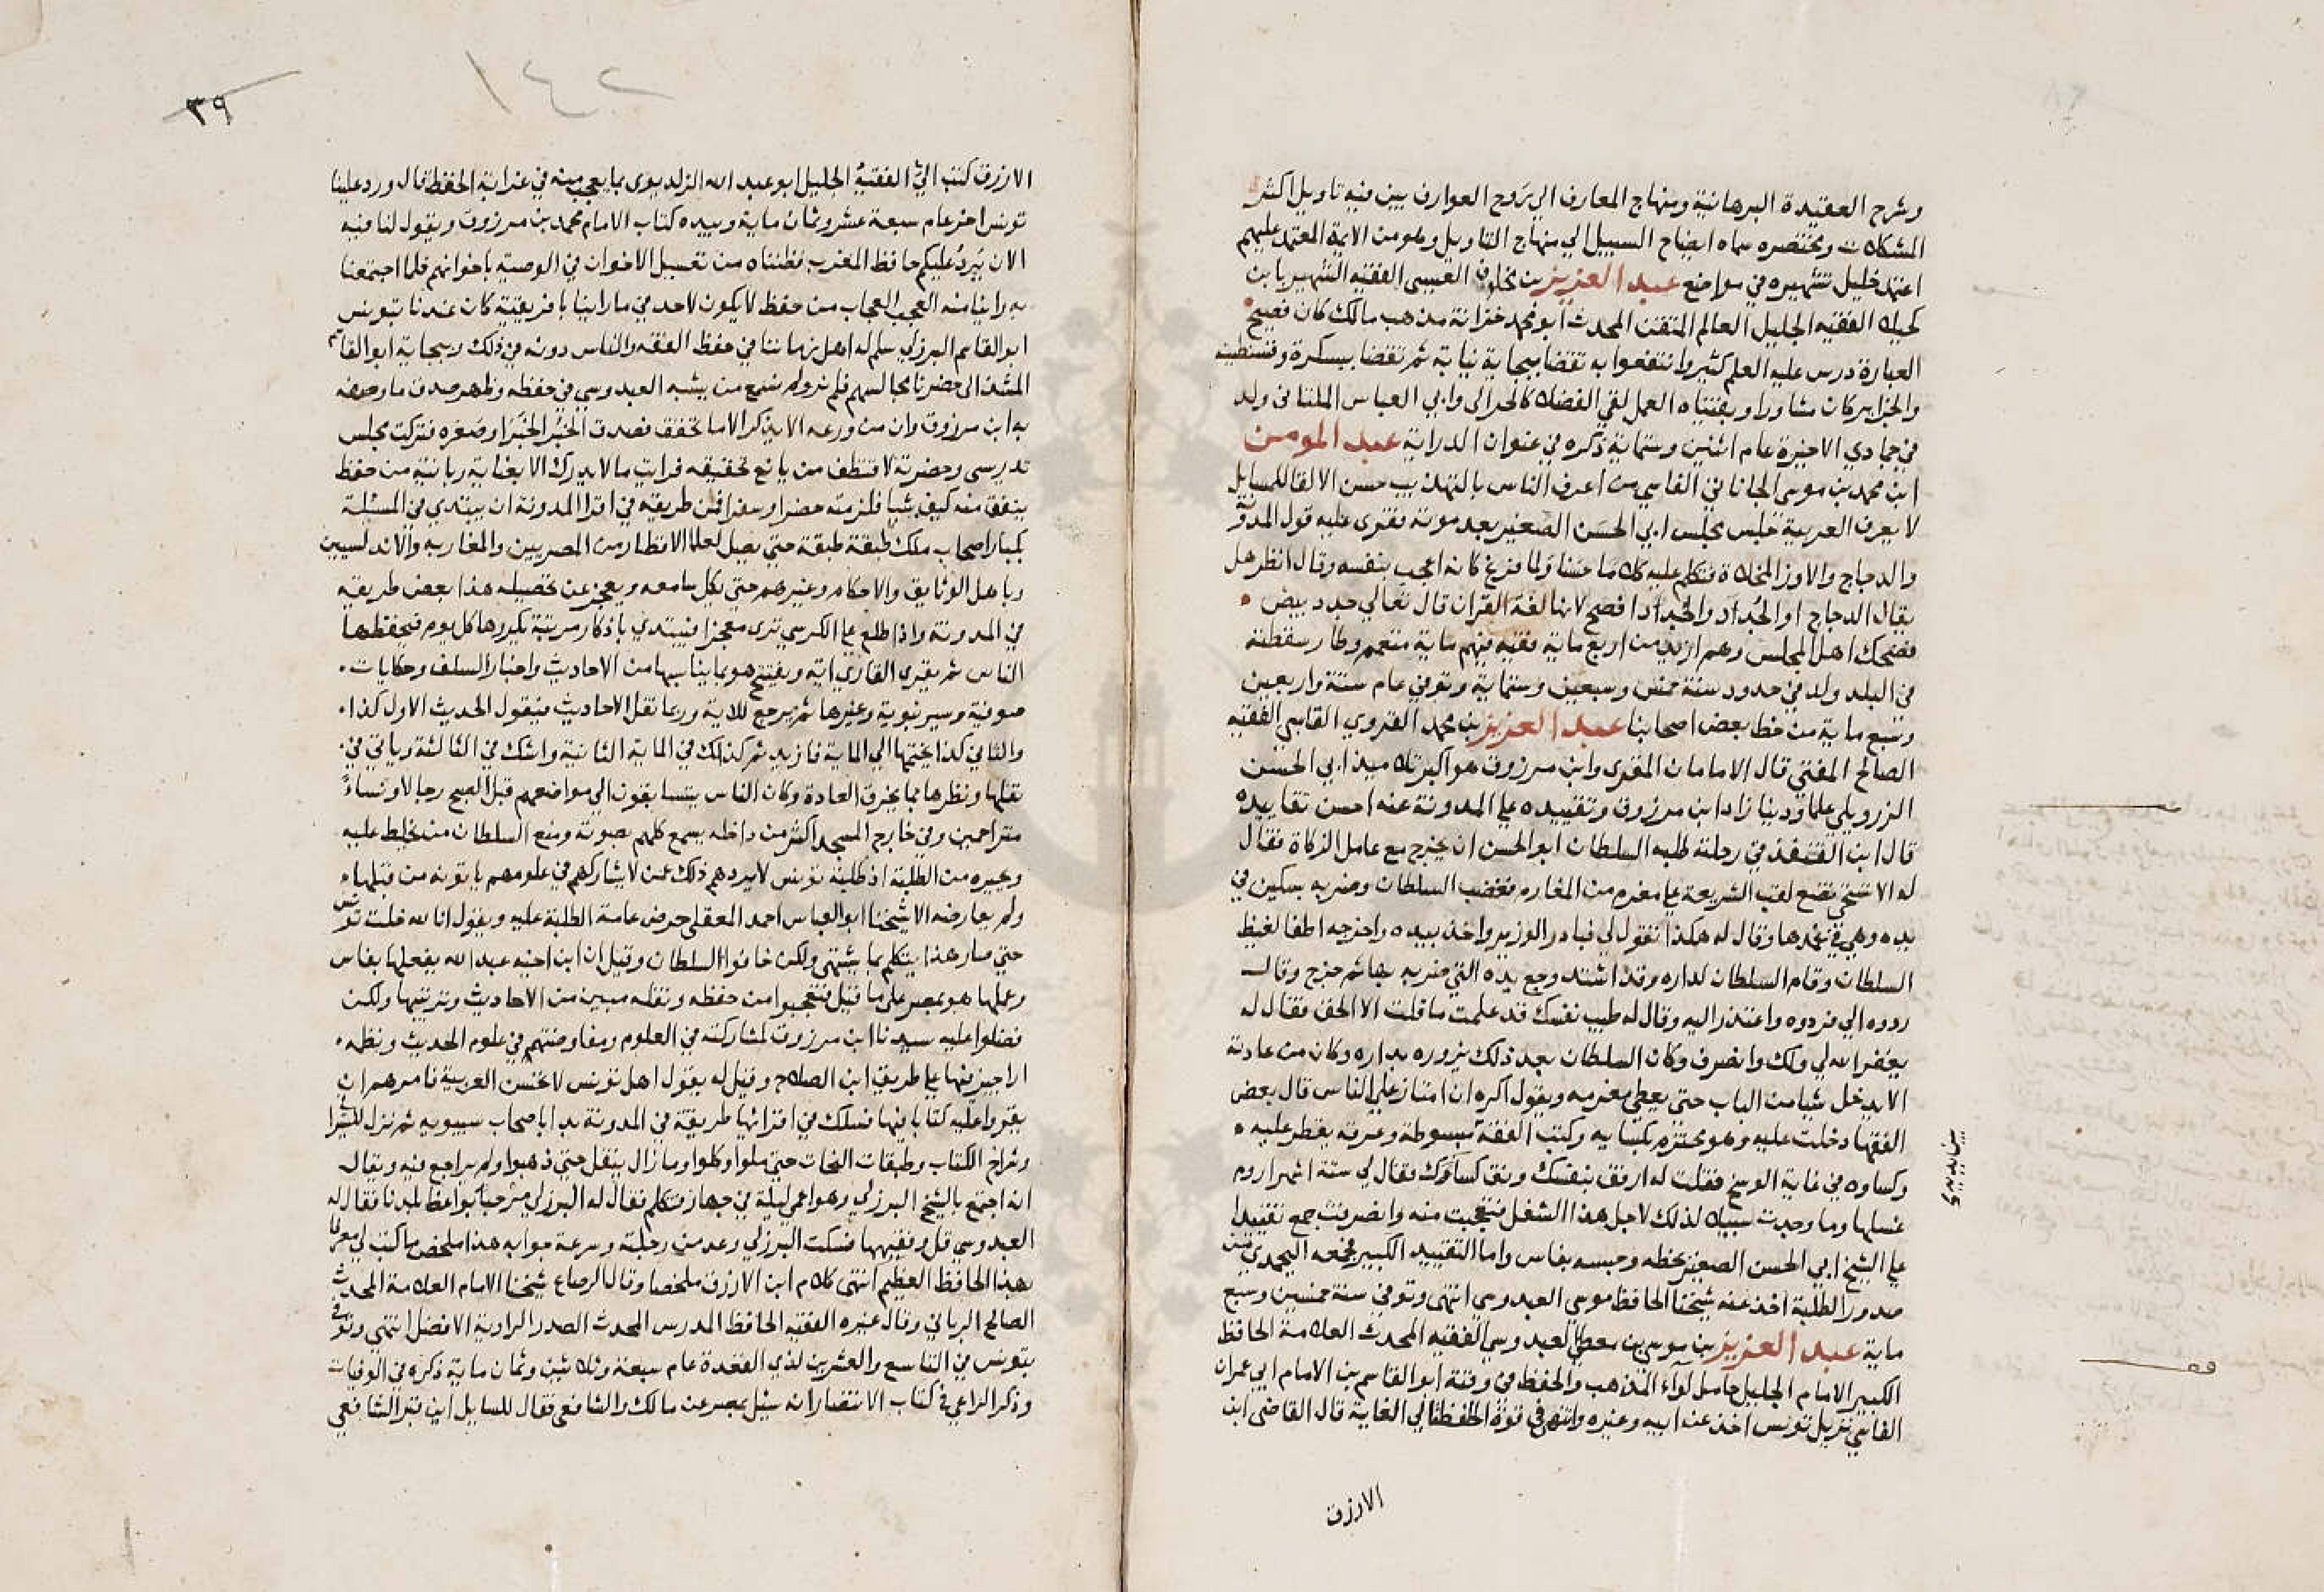 وشرح العقيدة البرهانية ومنهاج المعارف الي روح العوارف بين فيه تاويل اكثر
المشكلات ومختصره سماه ايضاح السبيل الي منهاج التاويل وهو من الايمة المعتمد عليهم
اعتمد خليل تشهيره في مواضع عبد العزيز بن مخلوف العيسى الفقيه الشهير بابن
كحيلا الفقيه الجليل العالم المتقن المحدث ابو محمد خزانة مذهب مالك كان فصيح
العبارة درس عليه العلم كثير وانتفعوا به تقضا ببجاية نيابة ثم تقضا ببسكرة وقسنطينة
والجزاير كان مشاورا وبفتياه العمل لقي الفضلا كالحرالى وابي العباس الملتانى ولد
في جمادي الاخيرة عام اثنين وستماية ذكره في عنوان الدراية عبد المومن
ابن محمد بن موسى الجاناتي الفاسي من اعرف الناس بالتهذيب حسن الالقا للمسايل
لا يعرف العربية جلس بمجلس ابي الحسن الصغير بعد موته فقرى عليه قول المدونة
والدجاج والاوز المخلاة فتكلم عليه كلاما حسنا ولما فرغ كانه اعجب بنفسه وقال انظر هل
يقال الدجاج او الجداد والجداد افصح لانها لغة القران قال تعالي جدد بيض
فضحك اهل المجلس وهم ازيد من اربع ماية فقيه فيهم ماية متعمم وطار سقطته
في البلد ولد في حدود سنة خمس وسبعين وستماية وتوفي عام ستة واربعين
وسبع ماية من خط بعض اصحابنا عبد العزيز بن محمد القروي الفاسي الفقيه
الصالح المفتي قال الامامان المقوى وابن مرزوق هو اكبر تلاميذ ابي الحسن
الزرويلي علما ودينا زاد ابن مرزوق وتقييده علي المدونة عنه احسن تقاييده
قال ابن القنفذ في رحلته طلبه السلطان ابو الحسن ان يخرج مع عامل الزكاة فقال
له الا تستحي تضع لقب الشريعة علي مغرم من المغارم فغضب السلطان وضربه بسكين في
يده وهي في غمدها وقال له هكذا تقول لي فبادر الوزير واخذ بيده واخرجه اطفا لغيظ
السلطان وقام السلطان لداره وقد اشتد وجع يده التي ضربه بها ثم خرج وقال
ردوه الي فردوه واعتذر اليه وقال له طيب نفسك قد علمت ما قلت الا الحق فقال له
يغفر الله لي ولك وانصرف وكان السلطان بعد ذلك يزوره بداره وكان من عادته
الا يدخل شيا من الباب حتي يعطي مغرمه ويقول اكره ان امتاز علي الناس قال بعض
الفقها دخلت عليه وهو محتزم بكسايه وكتب الفقه مبسوطة وعرقه يقطر عليه
وكساوه في غاية الوسخ فقلت له ارفق بنفسك ونق كساوك فقال لي ستة اشهر اروم
غسلها وما وجدت سبيلا لذلك لاجل هذا الشغل فتعجبت منه وانصرفت جمع تقييدا
علي الشيخ ابي الحسن الصغير بخطه وحبسه بفاس واما التقييد الكبير فجمعه اليحمدي من
صدور الطلبة اخذ عنه شيخنا الحافظ موسي العبدوسي انتهى وتوفي سنة خمسين وسبع
ماية عبد العزيز بن موسى بن معطي العبدوسي الفقيه المحدث العلامة الحافظ
الكبير الامام الجليل حامل لواء المذهب والحفظ في وقته ابو القاسم بن الامام ابي عمران
الفاسي نزيل تونس اخذ عن ابيه وغيره وانتهى في قوة الحفظ الي الغاية قال القاضى ابن
الازرق
١٤٢
٣٩
الازرق كتب الي الفقيه الجليل ابو عبد الله الزلديوى بما يعجب منه في غرابة الحفظ قال ورد علينا
تونس اخر عام سبعة عشر وثمان ماية وبيده كتاب الامام محمد بن مرزوق ويقول لنا فيه
الان يرد عليكم حافظ المغرب فظنناه من تعسيل الاخوان في الوصية باخوانهم فلما اجتمعنا
به راينا منه العجب العجاب من حفظ لا يكون لاحد في ما راينا بافريقية كان عندنا بتونس
ابو القاسم البرزلي سلم له اهل زماننا في حفظ الفقه والناس دونه في ذلك وببجاية ابو القاسم
المشذالى حضرنا مجالسهم فلم نر ولم نسمع من يشبه العبدوسي في حفظه وظهر صدق ما وصفه
به ابن مرزوق وان من ورعه الا يذكر الا ما تحقق فصدق الخبر الخبر او صغره فتركت مجلس
تدرسى وحضرته لاقتطف من يانع تحقيقه فرايت ما لا يدرك الا بعناية ربانية من حفظ
ينفق منه كيف شيا فلزمته حضرا وسفرا فمن طريقه في اقرا المدونة ان يبتدي في المسئلة
بكبار اصحاب ملك طبقة طبقة حتي يصل لعلما الاقطار من المصريين والمغاربه والاندلسيين
وباهل الوثايق والاحكام وغيرهم حتي يكل سامعه ويعجز عن تحصيله هذا بعض طريقه
في المدونة واذا طلع علي الكرسي ترى معجزا فيبتدي باذكار مرتبة يكررها كل يوم فيحفظها
الناس ثم يقرى القاري اية ويفتتح هو بما يناسبها من الاحاديث واخبار السلف وحكايات
صوفية وسير نبوية وغيرها ثم يرجع للاية وربما نقل الاحاديث فيقول الحديث الاول كذا
والثاني كذا يختمها الي الماية فازيد ثم كذلك في الماية الثانية واشك في الثالثة وياتي في
نقلها ونظرها مما يخرق العادة وكان الناس يتسابقون الي مواضعهم قبل الصبح رجالا ونساء
متزاحمين وفي خارج المسجد اكثر من داخله يسمع كلهم بصوته ومنع السلطان من يخلط عليه
وغيره من الطلبة اذ طلبة تونس لا يردهم ذلك عن لا يشاركهم في علومهم ياتونه من قبلها
ولم يعارضه الا شيخنا ابو العباس احمد المعقلى حرض عامة الطلبة عليه ويقول انا لله خلت تونس
حتي صار هذا يتكلم بما يشتهى ولكن خافوا السلطان وقيل ان ابن اخيه عبد الله يفعلها بفاس
وعملها هو بمصر على ما قيل فتعجبوا من حفظه ونقله مبين من الاحاديث وترتيبها ولكن
فضلوا عليه سيدنا ابن مرزوق لمشاركته في العلوم ومفاوضتهم في علوم الحديث ونظمه
اراجيز فيها علي طريق ابن الصلاح وقيل له يقول اهل تونس لا تحسن العربية فامرهم ان
يقروا عليه كتابا فيها فسلك في اقرائها طريقة في المدونة بدا باصحاب سيبويه ثم نزل للسيرا
وشراح الكتاب وطبقات النحات حتي ملوا وكلوا وما زال ينقل حتي ذهبوا ولم يراجع فيه ويقال
انه اجتمع بالشيخ البرزلي وهو اعمى ليلة في جهاز فتكلم فقال له البرزلي مرحبا بواعظ بلدنا فقال له
العبدوسي قل وفقيهها فسكت البرزلي وعد من رحلته وسرعة جوابه هذا ملخص ما كتب لي معرفا
بهذا الحافظ العظيم انتهى كلام ابن الازرق ملخصا وقال الرصاع شيخنا الامام العلامة المحدث
الصالح الرباني وقال غيره الفقيه الحافظ المدرس المحدث الصدر الراوية الافضل انتهي وتوفي
بتونس في التاسع والعشرين لذي القعدة عام سبعة وثلاثين وثمان ماية ذكره في الوفيات
وذكر الراعي في كتاب الانتصار انه سئل بمصر عن مالك والشافعى فقال للسايل اين قبر الشافعى